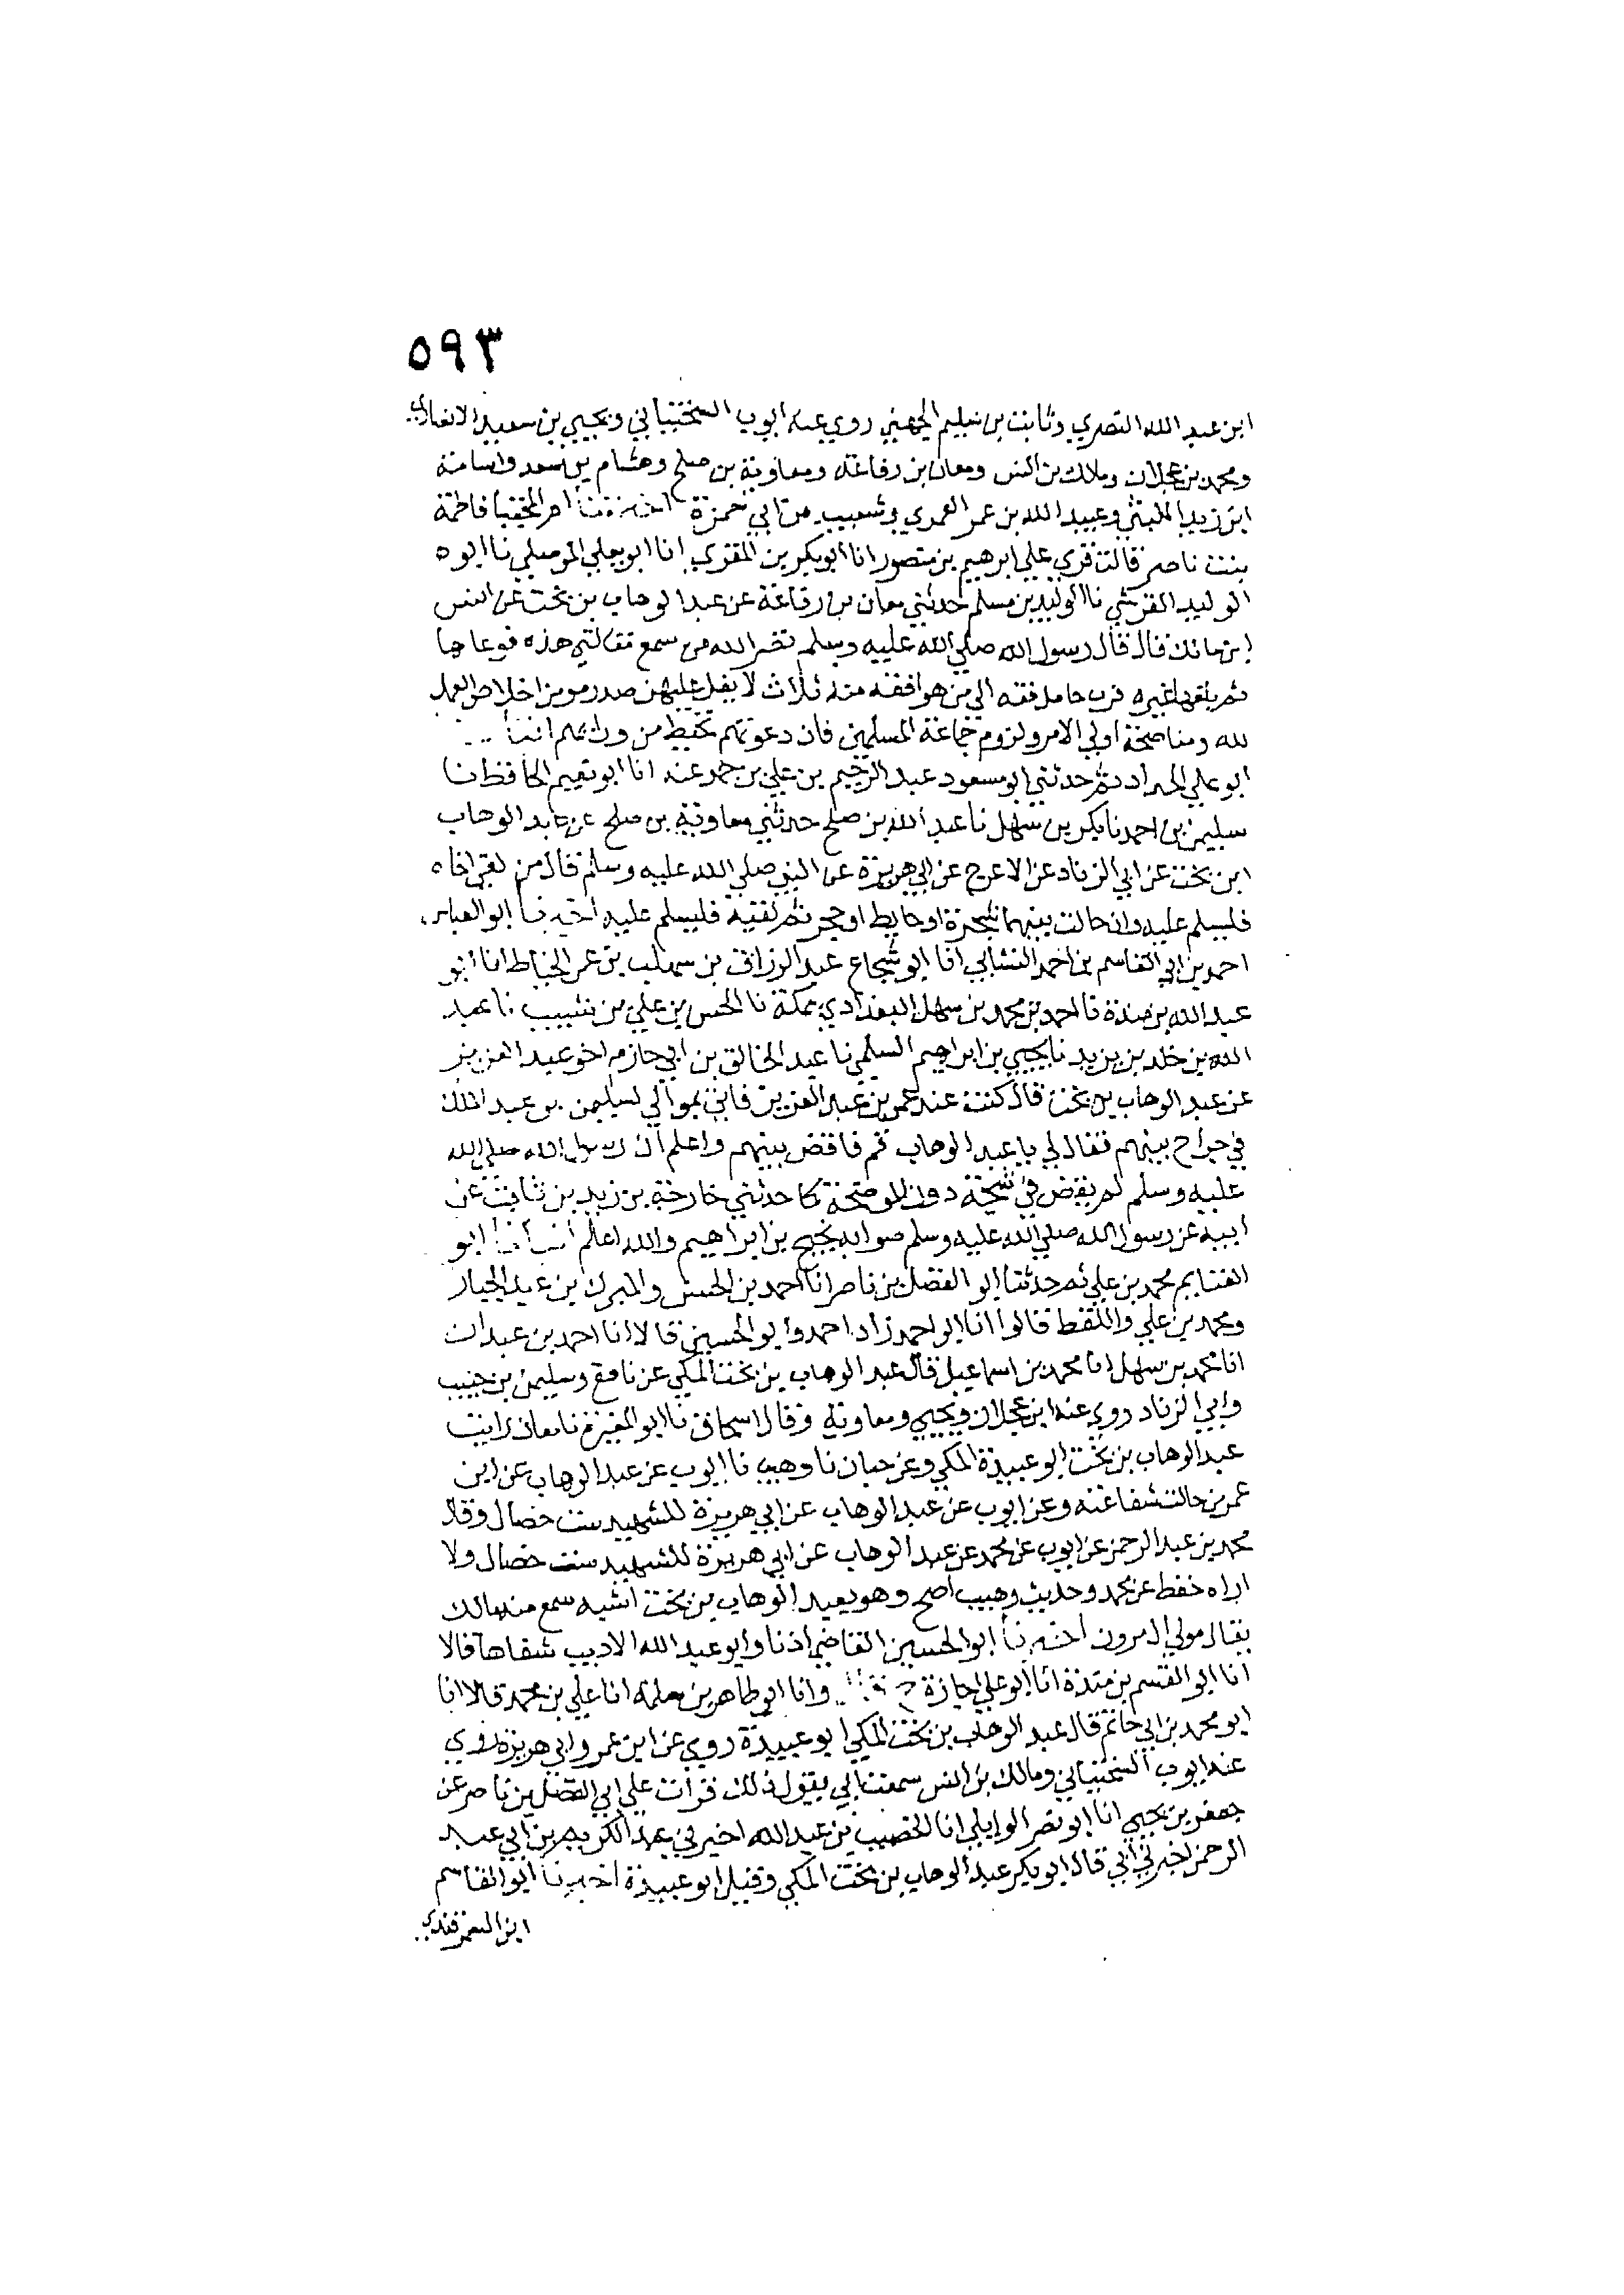 ٥٩٣
ابن عبد الله النصري وثابت بن سليم الجهني روي عنه ايوب السختياني ويحيي بن سعيد الانصاري
ومحمد بن عجلان ومالك بن انس ومعان بن رفاعة ومعاوية بن صلح وهشام بن سعد واسامة
ابن زيد الليثي وعبيد الله بن عمر العمري وشعيب بن ابي حمزة اخبرتنا ام المجتبا فاطمة
بنت ناصر قالت قري علي ابرهيم بن منصور انا ابو بكر بن المقري انا ابو يعلي الموصلي نا ابو
الوليد القرشي نا الوليد بن مسلم حدثني معان بن رفاعة عن عبد الوهاب بن بخت عن انس
ابن مالك قال قال رسول الله صلي الله عليه وسلم نضر الله من سمع مقالتي هذه فوعاها
ثم بلغها غيره فرب حامل فقه الي من هو افقه منه ثلاث لا يغل عليهن صدر مومن اخلاص العمل
لله ومناصحة اولي الامر ولزوم جماعة المسلمين فان دعوتهم تحيط من ورائهم انبأنا
ابو علي الحداد ثم حدثني ابو مسعود عبد الرحيم بن علي بن حمد عنه انا ابو نعيم الحافظ نا
سليمن بن احمد نا بكر بن سهل نا عبد الله بن صلح حدثني معاوية بن صلح عن عبد الوهاب
ابن بخت عن ابي الزناد عن الاعرج عن ابي هريرة عن النبي صلي الله عليه وسلم قال من لقي اخاه
فليسلم عليه وان حالت بينهما شجرة او حايط او حجر ثم لقيه فليسلم عليه اخبرنا ابو العباس
احمد بن ابي القاسم بن احمد النشابي انا ابو شجاع عبد الرزاق بن سهلب بن عمر الخياط انا ابو
عبد الله بن مندة نا احمد بن محمد بن سهل البغدادي بمكة نا الحسن بن علي بن شبيب نا عبد
الله بن خلد بن يزيد نا يحيي بن ابراهيم السلمي نا عبد الخالق بن ابي حازم اخو عبد العزيز
عن عبد الوهاب بن بخت قال كنت عند عمر بن عبد العزيز فاتي بموالي لسليمن بن عبد الملك
في جراح بينهم فقال لي يا عبد الوهاب قم فاقض بينهم واعلم ان رسول الله صلي الله
عليه وسلم لم يقض في شجة دون الموضحة كما حدثني خارجة بن زيد بن ثابت عن
ابيه عن رسول الله صلي الله عليه وسلم صوابه يحيي بن ابراهيم والله اعلم انبأنا ابو
الغنايم محمد بن علي ثم حدثنا ابو الفضل بن ناصر انا احمد بن الحسن والمبرك بن عبد الجبار
ومحمد بن علي واللفظ قالوا انا ابو احمد زاد احمد وابو الحسين قالا انا احمد بن عبدان
انا محمد بن سهل انا محمد بن اسماعيل قال عبد الوهاب بن بخت المكي عن نافع وسليمن بن حبيب
وابي الزناد روي عنه ابن عجلان ويحيي ومعاوية وقال اسحاق نا ابو المغيرة نا معان رايت
عبد الوهاب بن بخت ابو عبيدة المكي وعن حبان نا وهيب نا ايوب عن عبد الوهاب عن ابن
عمر من حالت شفاعته وعن ايوب عن عبد الوهاب عن ابي هريرة للشهيد ست خصال وقال
محمد بن عبد الرحمن عن ايوب عن محمد عن عبد الوهاب عن ابي هريرة للشهيد ست خصال ولا
اراه حفظ عن محمد وحديث وهيب اصح وهو بعبد الوهاب بن بخت اشبه سمع منه مالك
يقال مولي ال مرون اخبرنا ابو الحسين القاضي اذنا وابو عبد الله الاديب شفاها قالا
انا ابو القسم بن مندة انا ابو علي اجازة ح وانا ابو طاهر بن سلمة انا علي بن محمد قالا انا
ابو محمد بن ابي حاتم قال عبد الوهاب بن بخت المكي ابو عبيدة روي عن ابن عمر وابي هريرة روي
عنه ايوب السختياني ومالك بن انس سمعت ابي يقول ذلك قرات علي ابي الفضل بن ناصر عن
جعفر بن يحيي انا ابو نصر الوايلي انا الخصيب بن عبد الله اخبرني عبد الكريم بن ابي عبد
الرحمن اخبرني ابي قال ابو بكر عبد الوهاب بن بخت المكي وقيل ابو عبيدة اخبرنا ابو القاسم
ابن السمرقندي